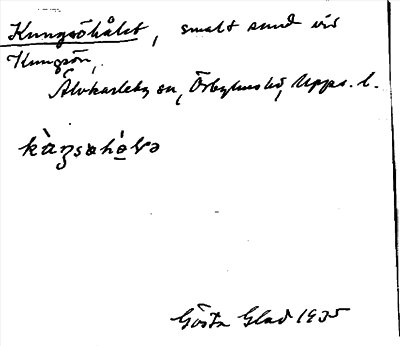 Kungsöhålet, smalt sund vid
Kungsön,
Älvkarleby sn, Örbyhus hd, Upps. l.
kàŋsøhó̠lə
Gösta Glad 1935